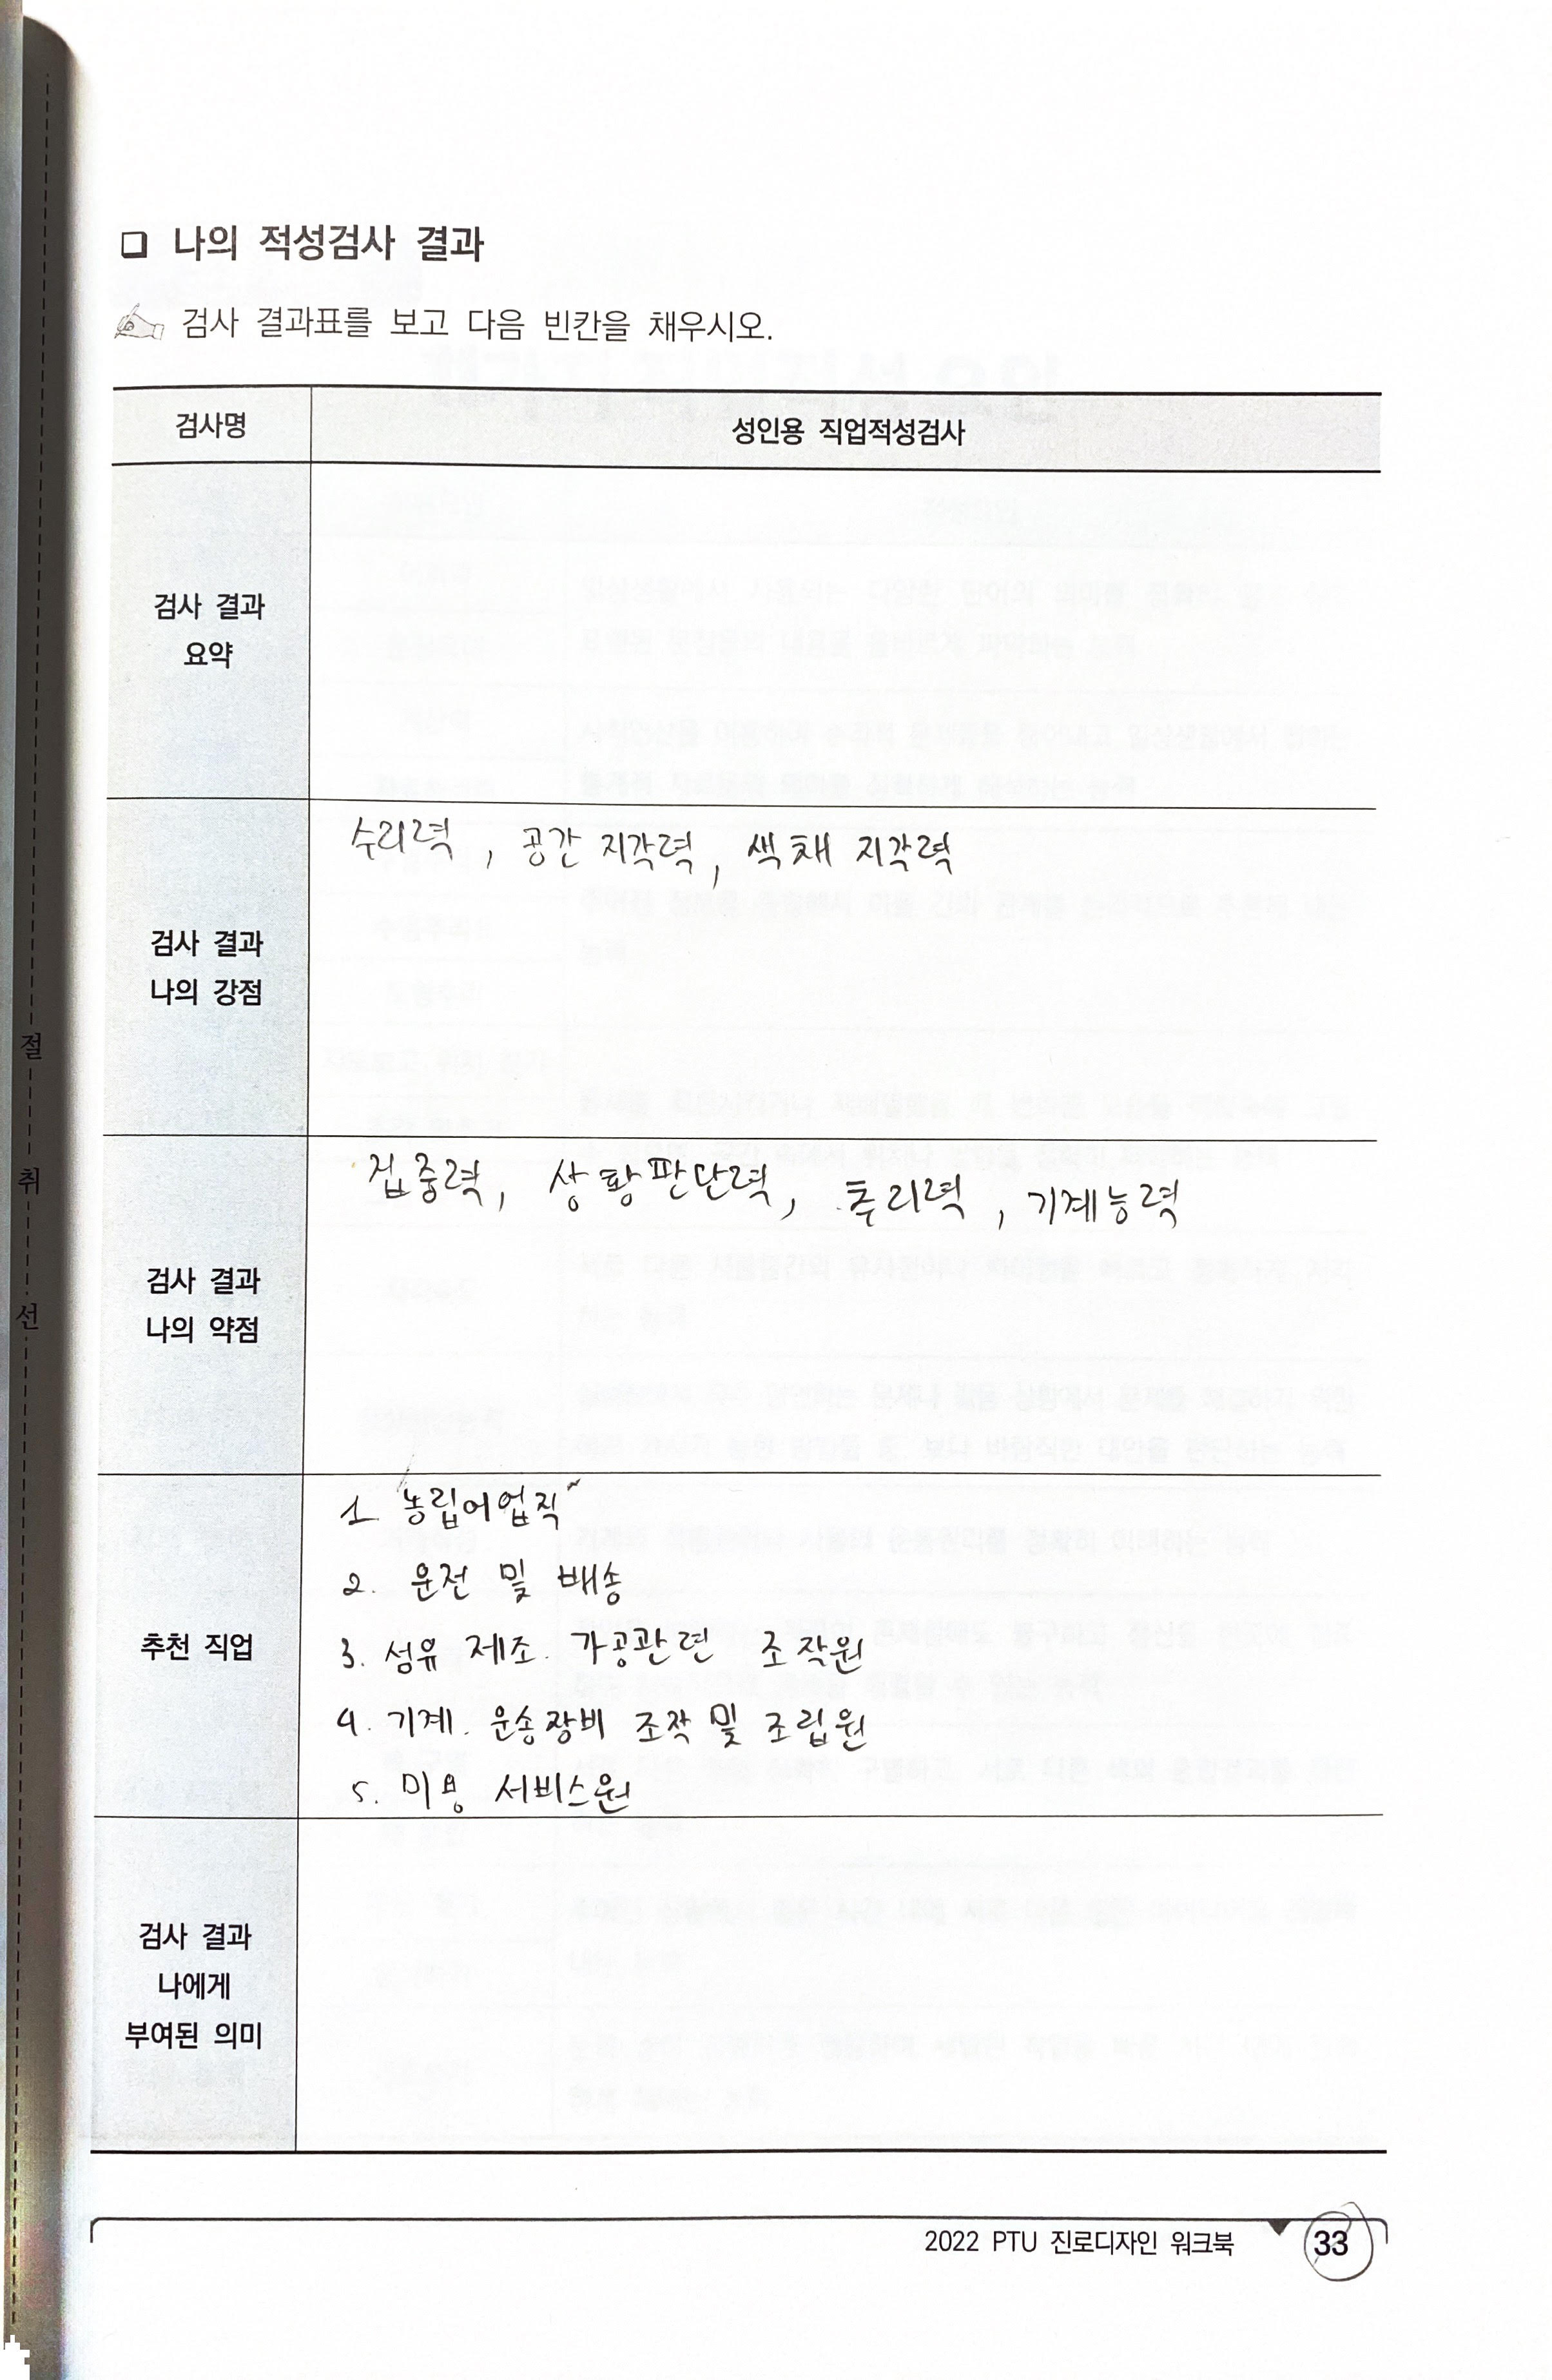 ❑ 나의 적성검사 결과
검사 결과표를 보고 다음 빈칸을 채우시오.
검사명
성인용 직업적성검사
검사 결과
요약
검사 결과
나의 강점
수리력, 공간 지각력, 색채 지각력
검사 결과
나의 약점
집중력, 상황판단력, 추리력, 기계능력
추천 직업
1. 농립어업직
2. 운전 및 배송
3. 섬유 제조. 가공관련 조작원
4. 기계. 운송장비 조작 및 조립원
5. 미용 서비스원
검사 결과
나에게
부여된 의미
절
취
선
2022 PTU 진로디자인 워크북
33